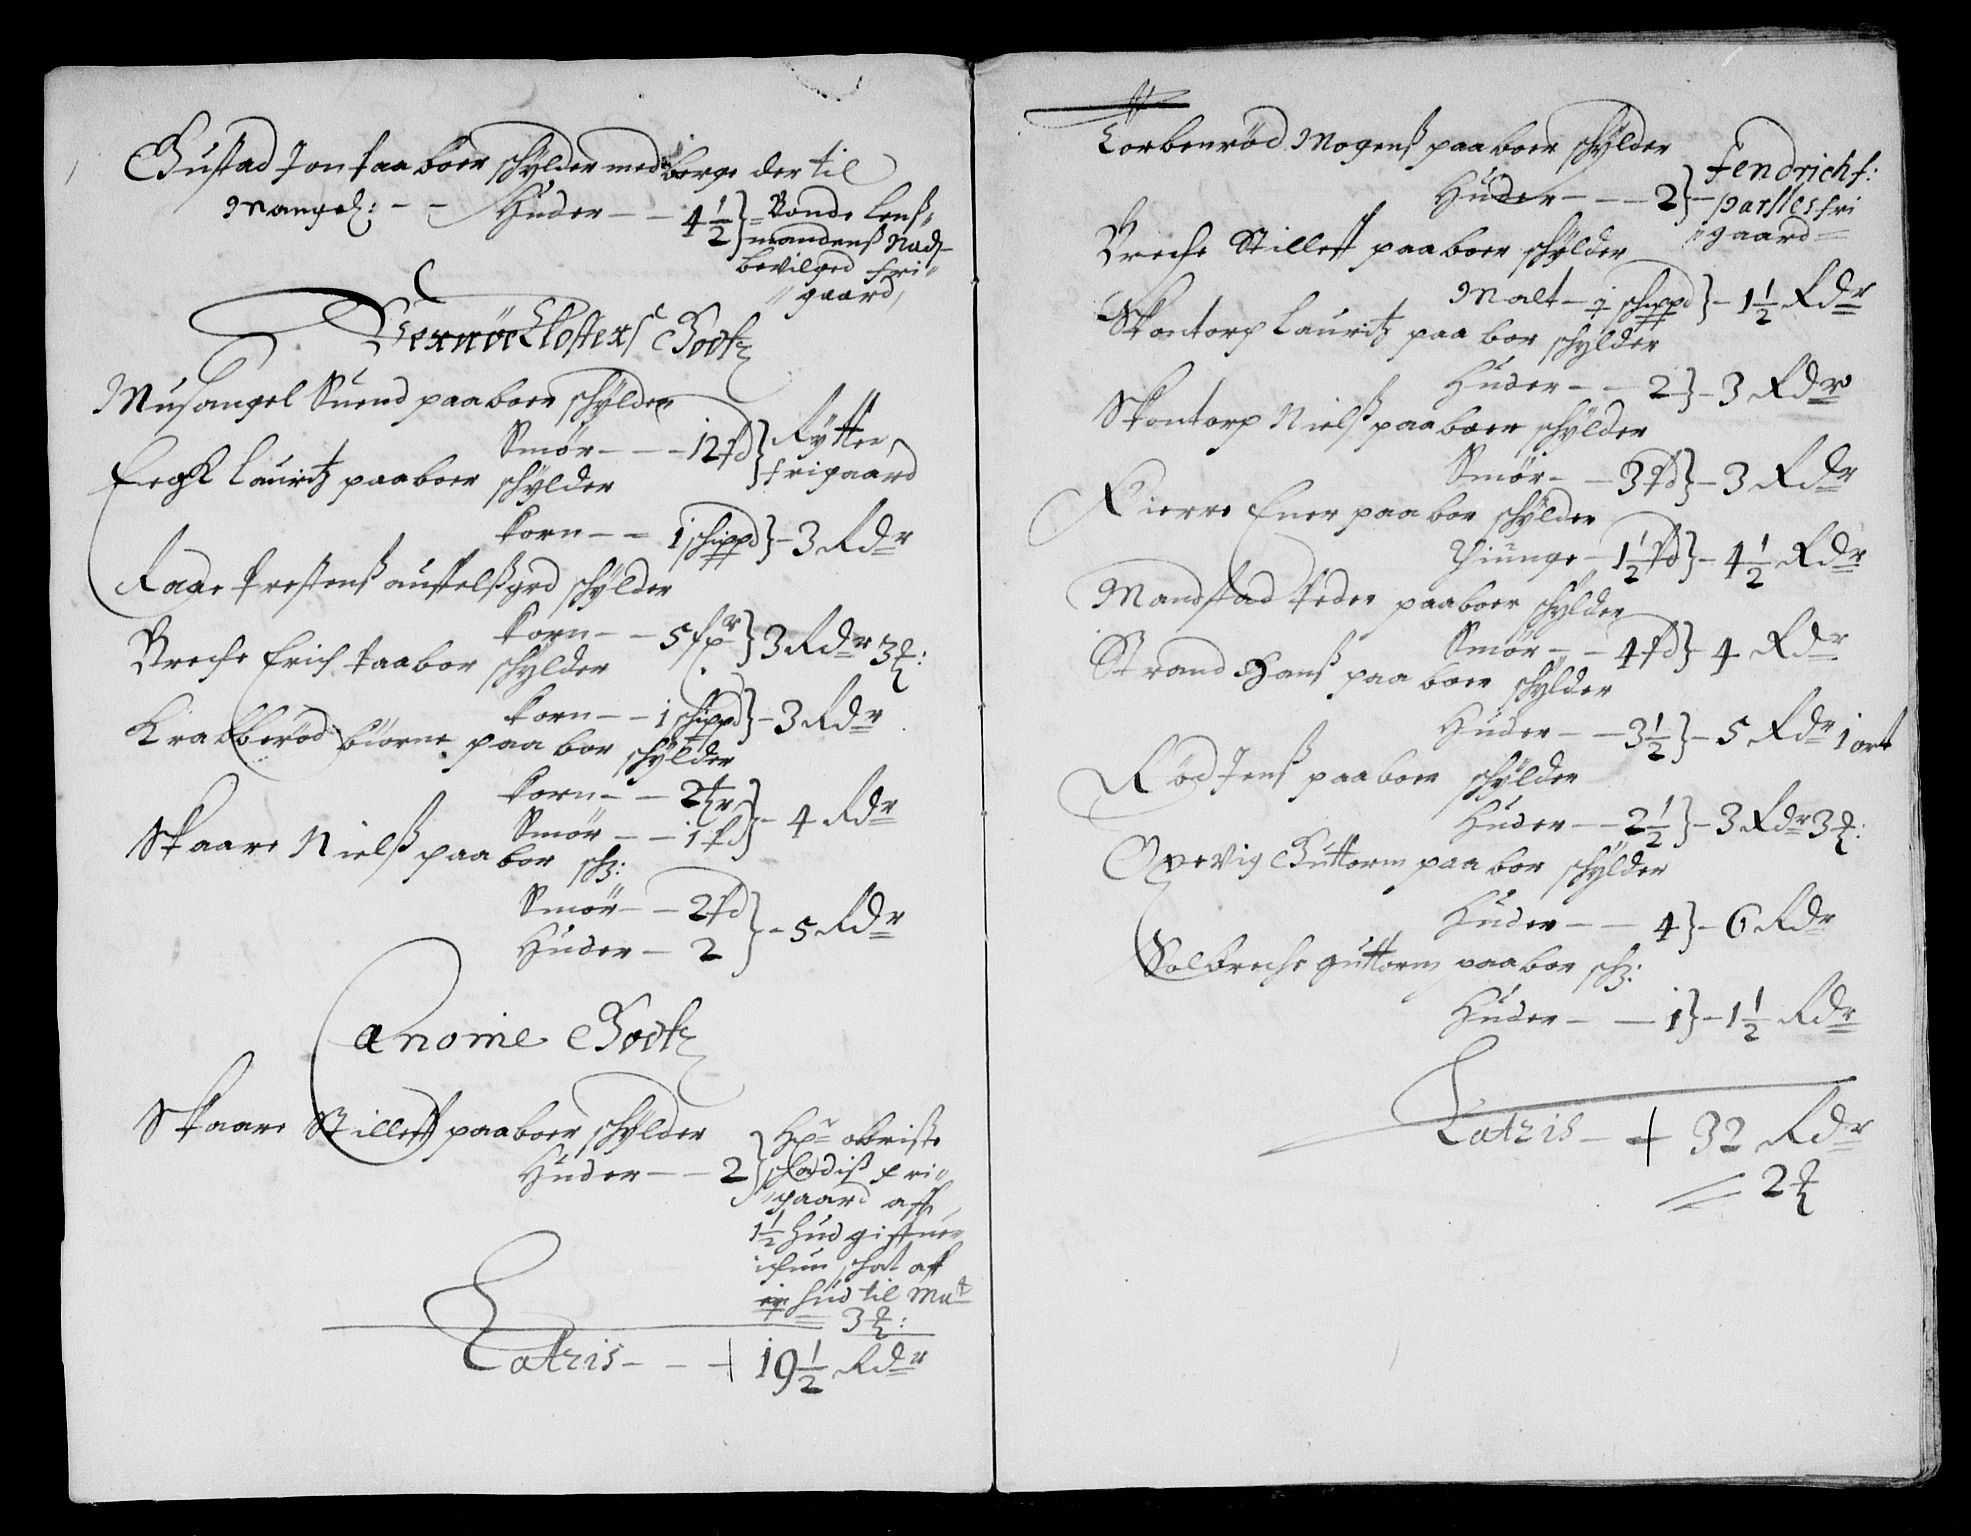 Gustad Jon paaboer schÿlder med berge der til
Mangel: - - Huder - - 4½ } = Bonde lenß-
mandenß Nad-
bevilged fri-
gaard
Wernöe Closters Godtz
Musangel Suend paaboer schÿlder
Smör - - - 12 pd } Rÿtter
frigaard
Eegh Lauritz paaboer schÿlder
korn - - 1 schippd } - 3 Rdr
Raade Prestenß austelßgrd schÿlder
korn - - 5 spr } 3 Rdr 3 ꝥ:
Breche Erich paabor schÿlder
korn - - 1 schippd } - 3 Rdr
Krabberöd biörne paa bor schÿlder
korn - - 2
Smör - - 1 pd } - 4 Rdr
Skaare Nielß paa bor sch:
Smör - - 2 pd
Huder - 2 } - 5 Rdr
Canonie Godtz
Skaare Stilleff paaboer schÿlder
Huder - - 2 } Hr obriste
fri-
gaard aff
1½ Hud gifuer
schat aff
hud til
3
Latris - - - 19½ Rdr
Torbenröd Mogenß paaboer schÿlder
Huder - - - 2 } - Fendrich f:
fri
gaard
Breche Stilleff paaboer schÿlder
Malt - 1 schippd } - 1½ Rdr
Skontorp Lauritz paa bor schÿlder
Huder - - 2 } - 3 Rdr
Skontorp Nielß paaboer schÿlder
Smör - - 3 pd } - 3 Rdr
Kierre Ener paa bor schÿlder
Tiunge - 1½ pd } - 4½ Rdr
Mandstad Peder paaboer schÿlder
Smör - - 4 pd } - 4 Rdr
Strand Hanß paa boer schÿlder
Huder - - 3½ } - 5 Rdr 1 ort
Röd Jenß paaboer schÿlder
Huder - - 2½ } - 3 Rdr 3 ꝥ:
Opevig Guttorm paa bor schÿlder
Huder - - 4 } - 6 Rdr
Solbreche guttorm paabor sch:
Huder - - 1 } - 1½ Rdr
Latris - 32 Rdr
2 ꝥ